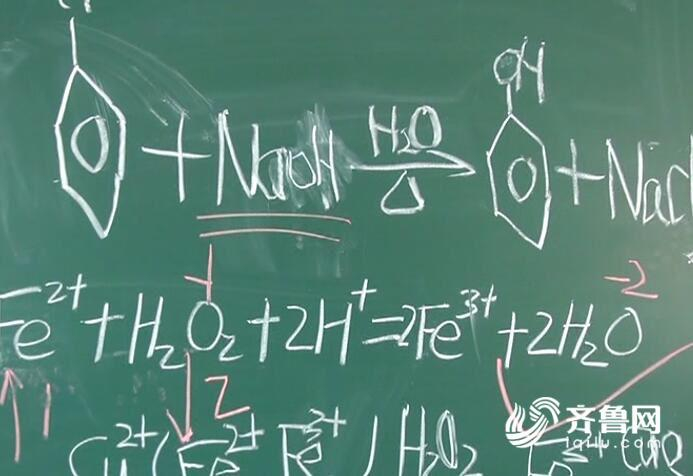 OH
+ NaOH H₂O △ + NaCl
-1 -2
Fe²⁺ + H₂O₂ + 2H⁺ = 2Fe³⁺ + 2H₂O
1 2
Cu²⁺ (Fe²⁺ Fe³⁺) / H₂O₂ Fe³⁺ CuO
齐鲁网
iqilu.com